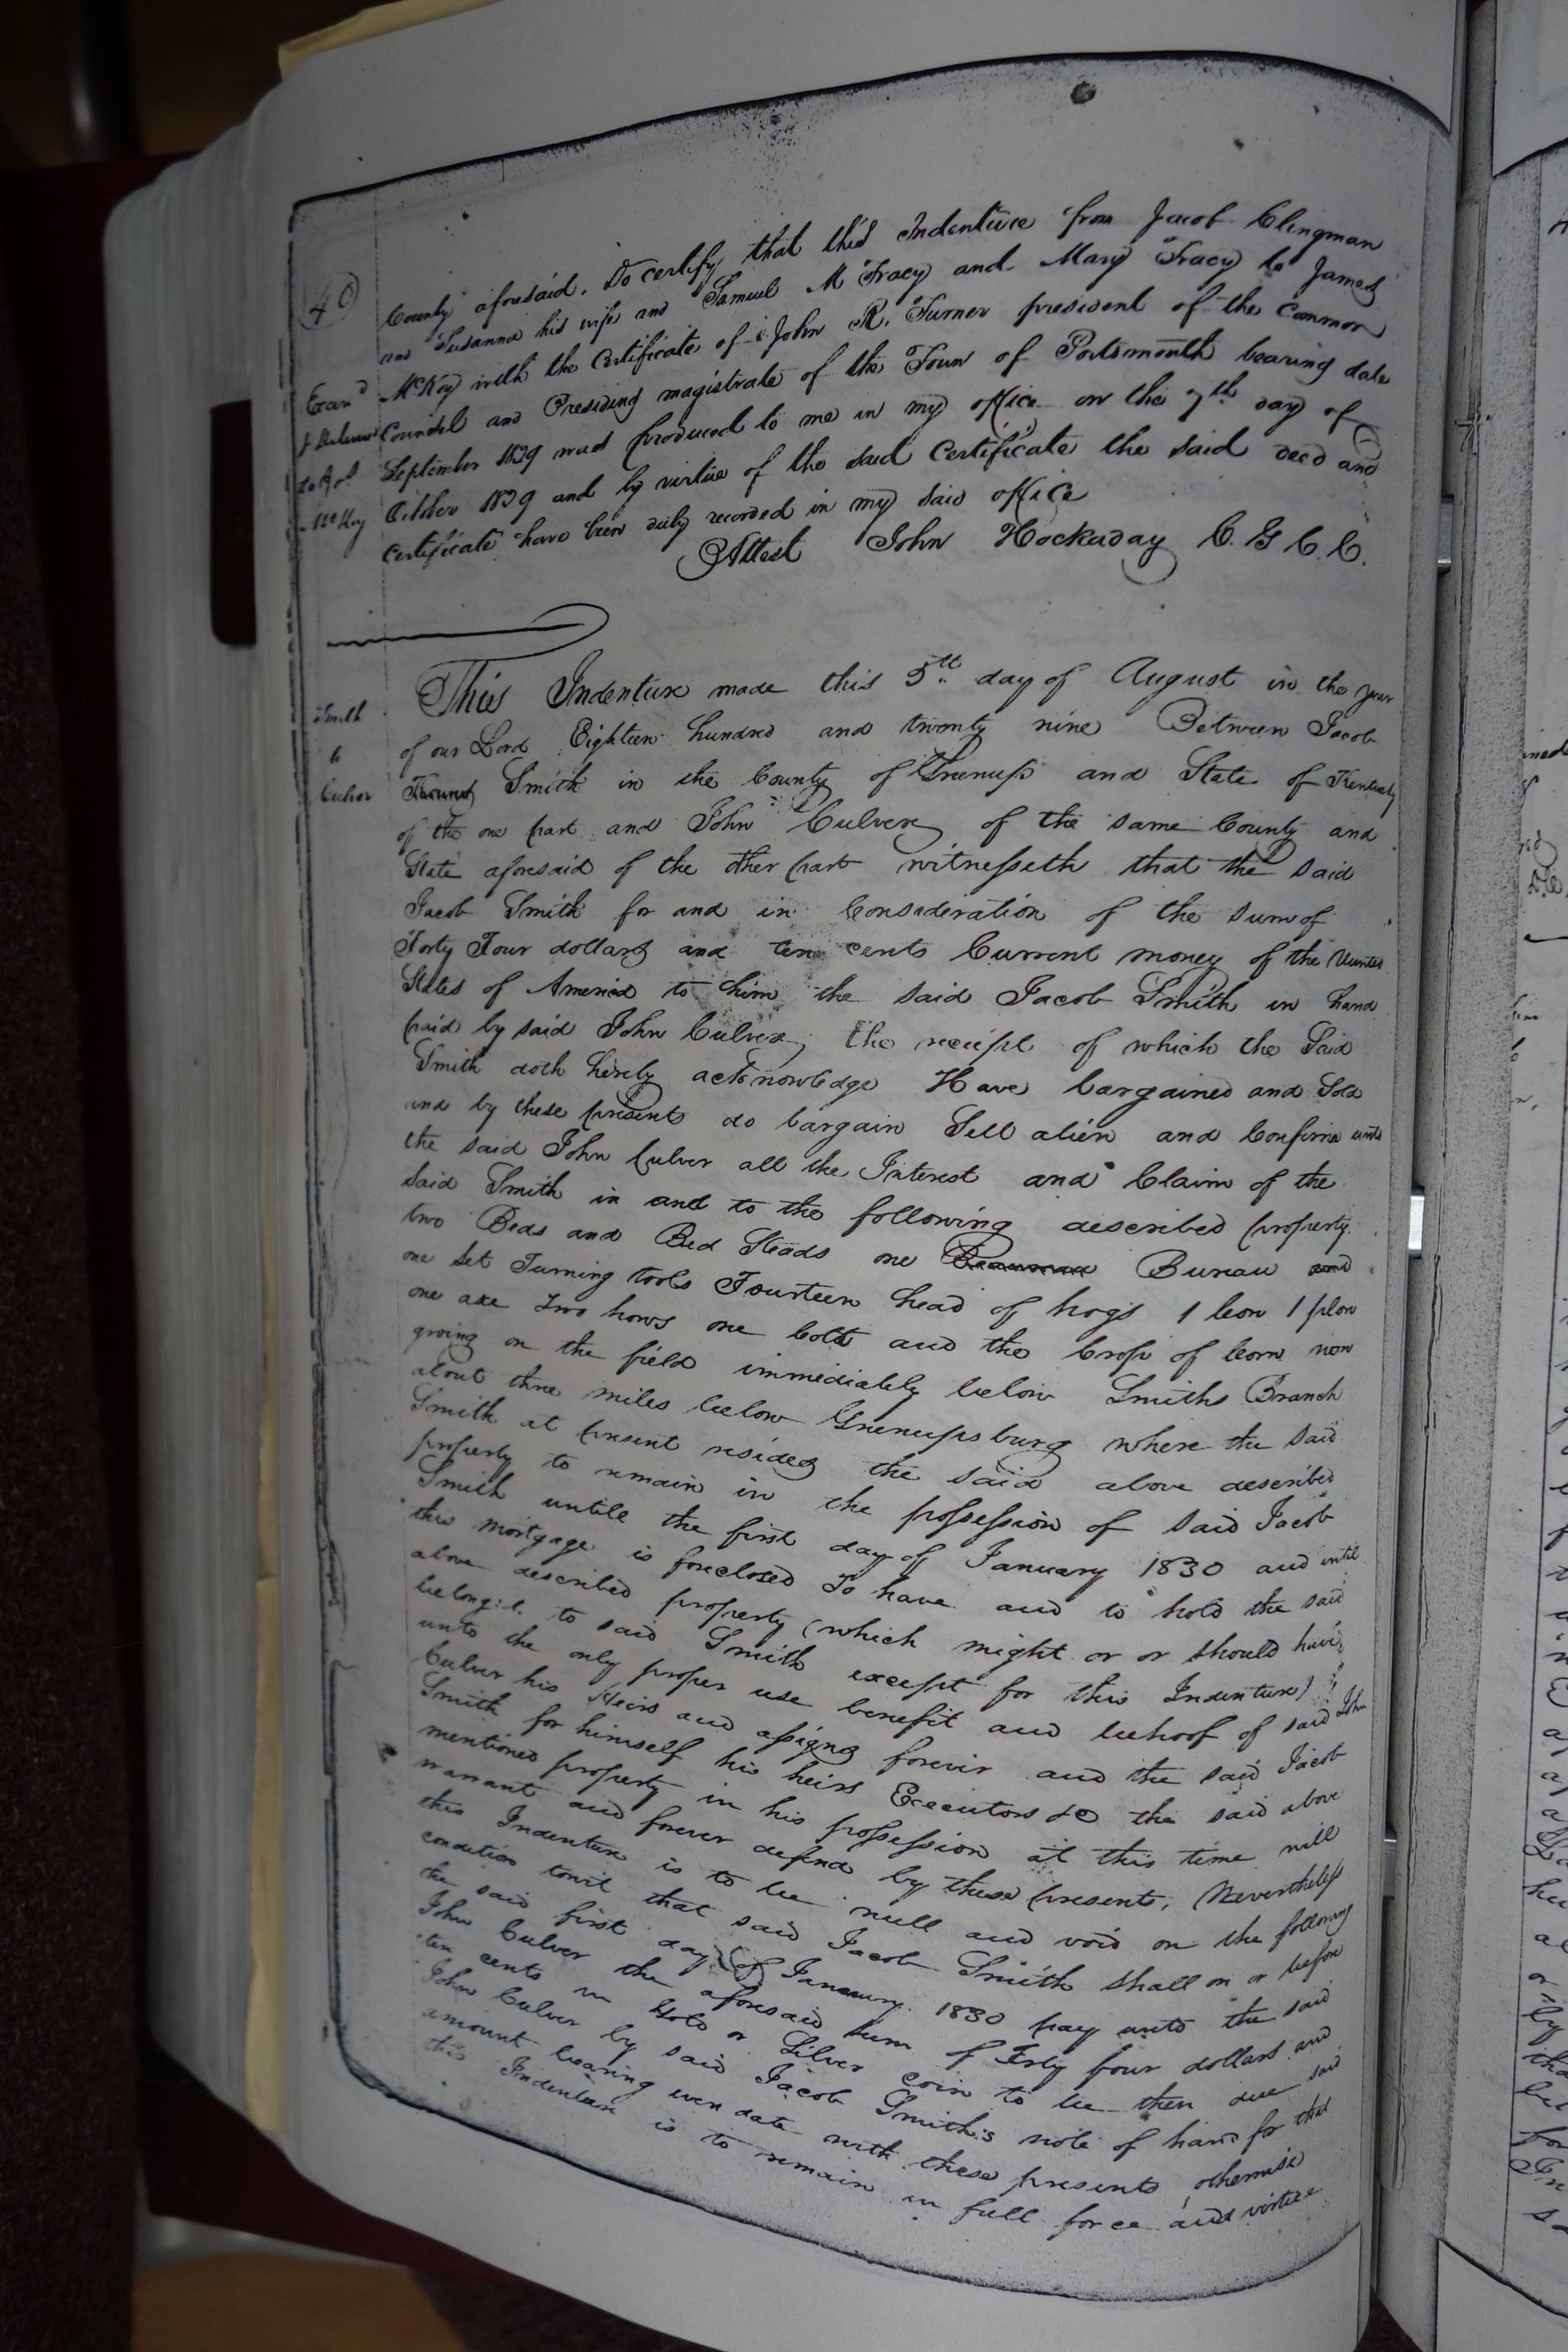 40
County aforesaid. Do certify that this Indenture from Jacob Clingman
and Susanna his wife and Samuel M Tracy and Mary Tracy to James
McKoy with the Certificate of John R. Turner president of the Common
Council and Presiding magistrate of the Town of Portsmouth bearing date
September 1829 was produced to me in my office on the 7th day of
October 1829 and by virtue of the said Certificate the said deed and
certificate have been duly recorded in my said office
Attest John Hockaday C. G C. C.
Exand
McKoy
Smith
to
Culver
This Indenture made this 5th day of August in the year
of our Lord Eighteen hundred and twenty nine Between Jacob
Smith in the County of Greenup and State of Kentucky
of the one part and John Culver of the same County and
State aforesaid of the other part witnesseth that the said
Jacob Smith for and in Consideration of the sum of
Forty Four dollars and ten cents Current money of the United
States of America to him the said Jacob Smith in hand
paid by said John Culver, the receipt of which the Said
Smith doth hereby acknowledge Have bargained and Sold
and by these presents do bargain Sell alien and Confirm unto
the said John Culver all the Interest and Claim of the
said Smith in and to the following described property.
two Beds and Bed Steads one Bureau and
one set Turning tools Fourteen head of hogs 1 Cow 1 plow
one axe two hows one Colt and the Crop of Corn now
growing on the field immediately below Smiths Branch
about three miles below Greenupsburg where the said
Smith at present resides the said above described
property to remain in the possession of said Jacob
Smith untill the first day of January 1830 and until
this mortgage is foreclosed To have and to hold the said
above described property (which might or or should have
belonged to said Smith except for this Indenture)
unto the only proper use benefit and behoof of said John
Culver his Heirs and assigns forevir and the said Jacob
Smith for himself his heirs Executors &c the said above
mentioned property in his possession at this time will
warrant and forever defend by these presents, Nevertheless
this Indenture is to be null and void on the following
condition towit that said Jacob Smith shall on or before
the said first day of January 1830 pay unto the said
John Culver the aforesaid sum of Forty four dollars and
ten cents in Gold or Silver coin to be then due said
John Culver by said Jacob Smith's note of hand for that
amount bearing even date with these presents otherwise
this Indenture is to remain in full force and virtue